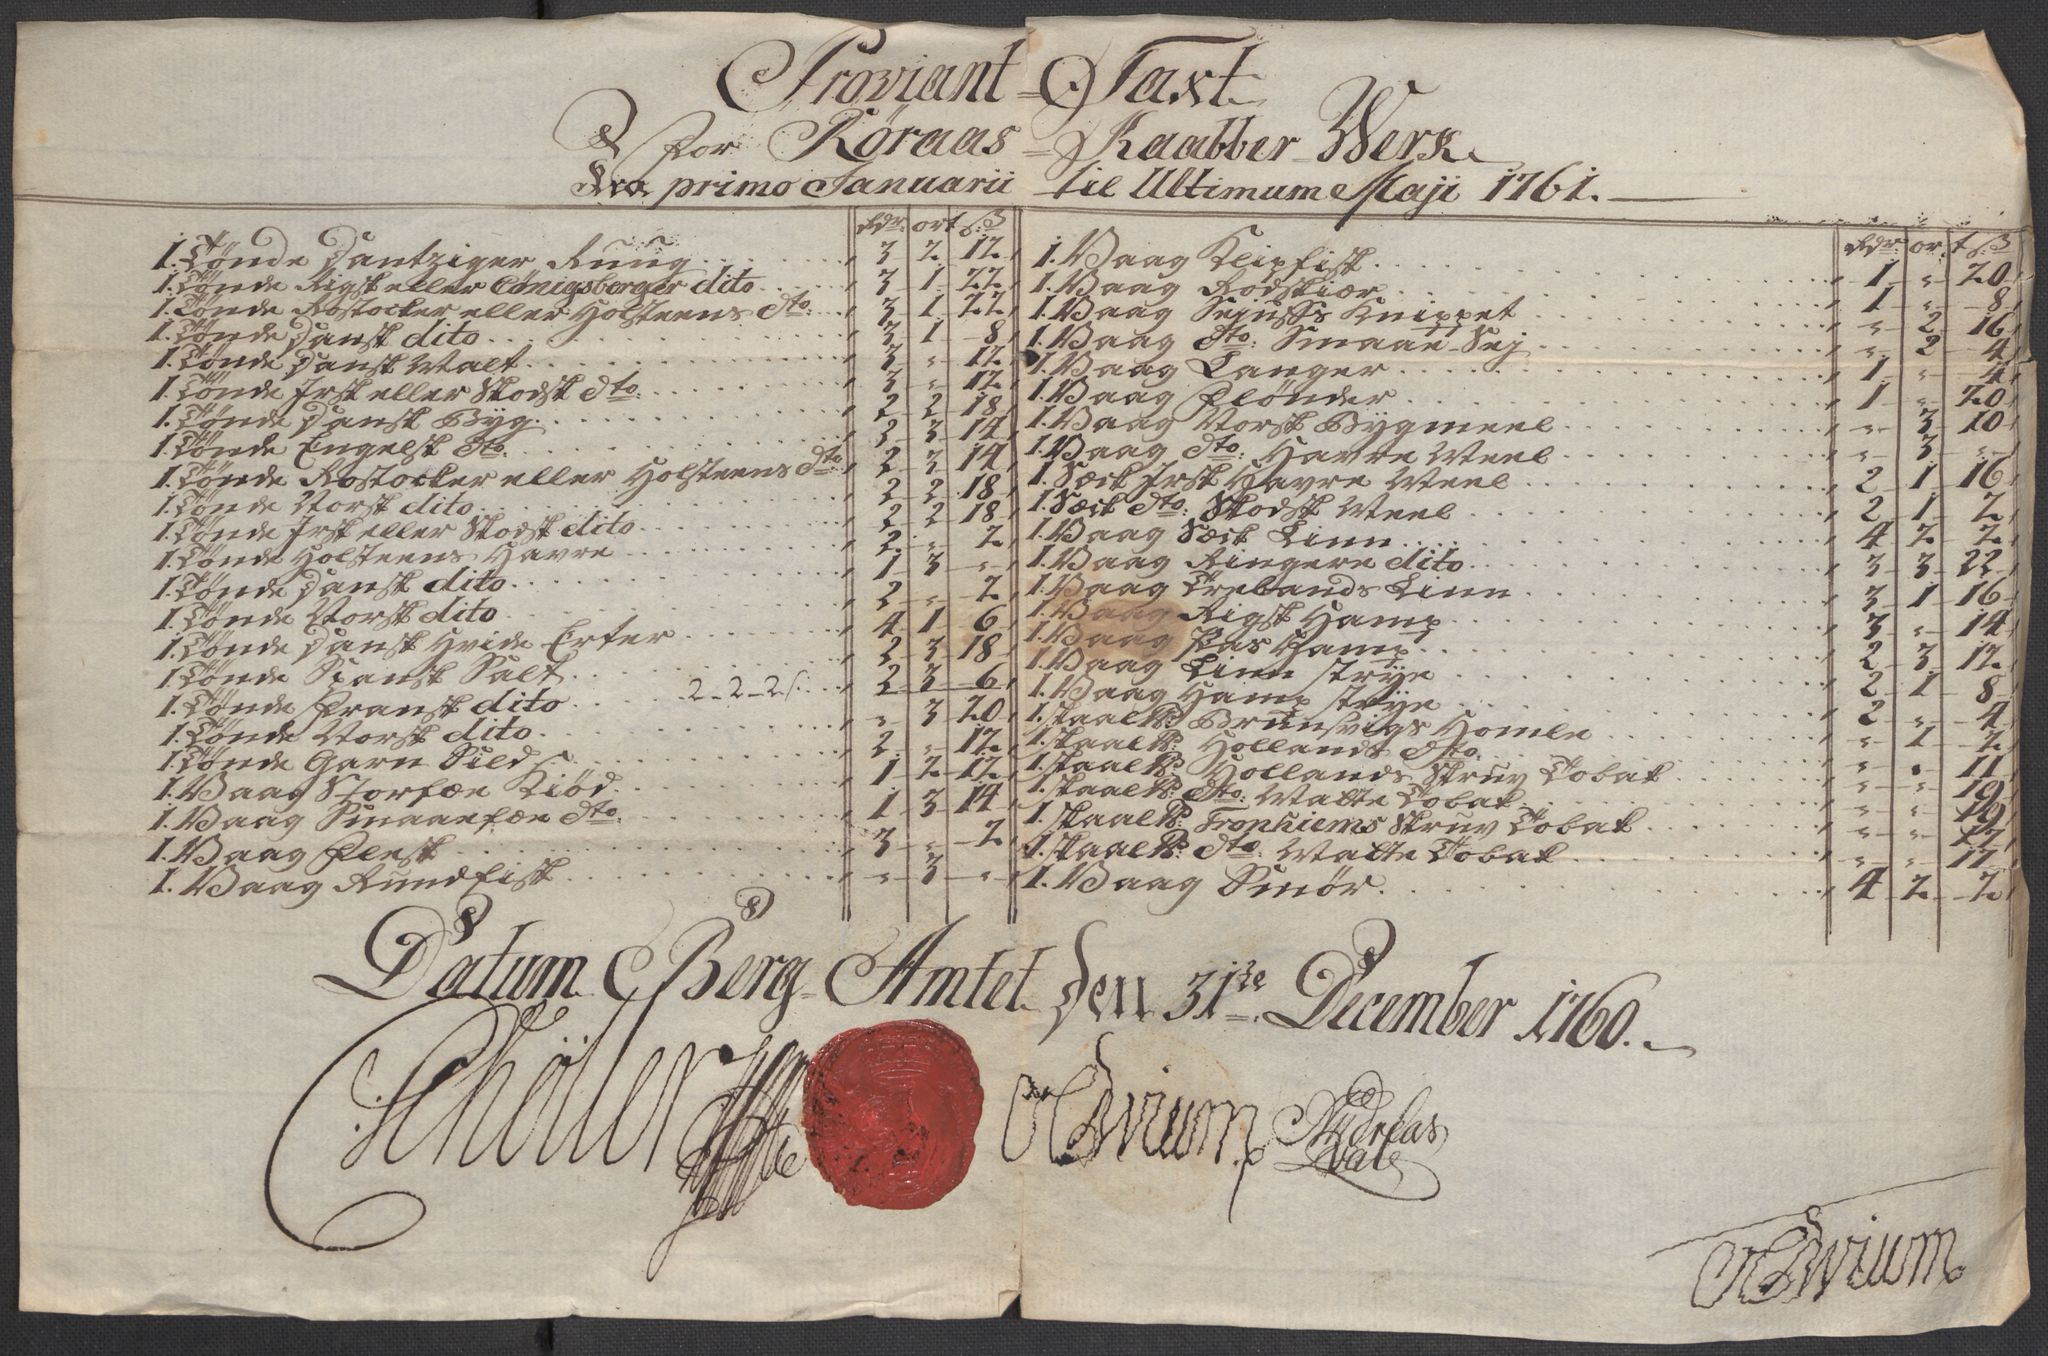 Proviant-Taxt
For Røraas-Kaabber-Werk
fra primo Januarii til Ultimum Maji 1761.
Rdr. ort. ß
1. Tønde Dantziger Rüüg 3 2 12
1. Tønde Rigsk eller Cönigsberger dito 3 1 22
1. Tønde Rostocker eller Holsteens dto: 3 1 22
1. Tønde Dansk dito 3 1 8
1. Tønde Dansk Malt 3 " 12
1. Tønde Irsk eller Skodsk dto: 3 " 12
1. Tønde Dansk Byg 2 2 18
1. Tønde Engelsk dto. 2 3 14
1. Tønde Rostocker eller Holsteens dto 2 3 14
1. Tønde Norsk dito 2 2 18
1. Tønde Irsk eller Skodsk dito 2 2 18
1. Tønde Holsteens Havre 2 " 2
1. Tønde Dansk dito 1 3 "
1. Tønde Norsk dito 2 " 2
1. Tønde Dansk Hvide Erter 4 1 6
1. Tønde Spansk Salt 2 3 18
1. Tønde Fransk dito 2-2-2 2 3 6
1. Tønde Norsk dito " 3 20
1. Tønde Garn Sild 2 " 12
1. Vaag Storfæe Kiød 1 2 12
1. Vaag Smaaefæe dto. 1 3 14
1. Vaag Flesk 3 " 2
1. Vaag Rundfisk " 3 "
Rdr. ort ß
1. Vaag Klipfisk 1 " 20
1. Vaag Rodskiær 1 " 8
1. Vaag Sejufs Knippet " 2 16
1. Vaag dto: Smaae-Sej " 2 4
1. Vaag Langer 1 " 4
1. Vaag Flønder 1 " 20
1. Vaag Norsk Bygmeel " 3 10
1. Vaag dto: Havre Meel " 3 "
1. Sæck Irsk Havre Meel 2 1 16
1. Sæck dto: Skodsk Meel 2 1 2
1. Vaag Sæck Linn 4 2 2
1. Vaag Ringere dito 3 3 22
1. Vaag Trebands Linn 3 1 16
1. Vaag Rigsk Hamp 3 " 14
1. Vaag Pas Hamp 2 3 12
1. Vaag Linn Strye 2 1 8
1. Vaag Hamp Strye 2 " 4
1. skaal℔: Brunsvigs Homle " 1 2
1. skaal℔: Hollands dto " " 11
1. skaal℔: Hollands Skruv Tobak " " 19
1. skaal℔: dto: Matte Tobak " " 19
1. skaal℔: Tronhiems Skruv Tobak " " 17
1. skaal℔: dto: Matte Tobak " " 17
1. Vaag Smør 4 2 2
Datum Berg-Amtet den 31te December 1760.
Schøller
Andreas